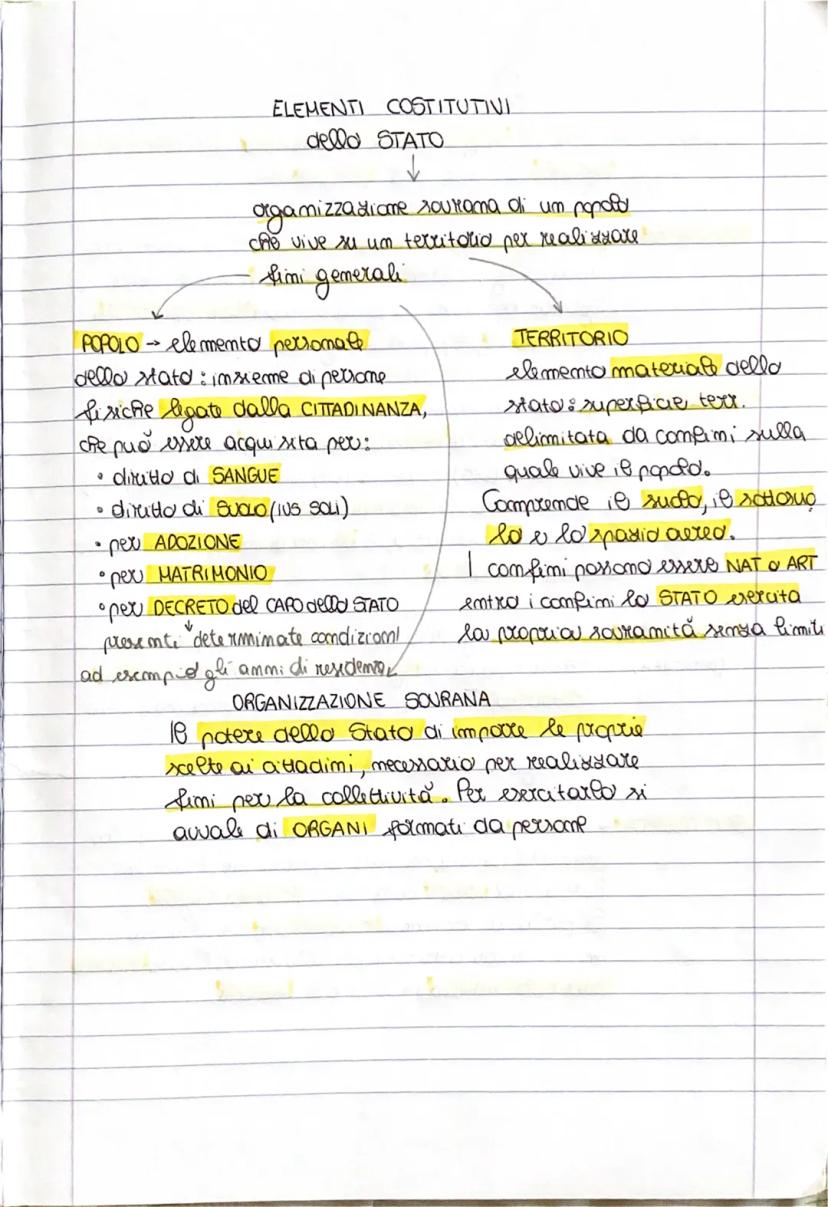 ELEMENTI COSTITUTIVI
dello STATO
organizzazione sovrana di un popolo
che vive su un territorio per realizzare
fini generali
POPOLO → elemento personale
dello stato: insieme di persone
fisiche legate dalla CITTADINANZA,
che può essere acquisita per:
• diritto di SANGUE
• diritto di SUOLO (IUS SOLI)
• per ADOZIONE
• per MATRIMONIO
• per DECRETO del CAPO dello STATO
presenti determinate condizioni
ad esempio gli anni di residenza
TERRITORIO
elemento materiale dello
stato: superficie terr.
delimitata da confini sulla
quale vive il popolo.
Comprende il suolo, il sottosuo
lo e lo spazio aereo.
I confini possono essere NAT o ART
entro i confini lo STATO esercita
la propria sovranità senza limiti
ORGANIZZAZIONE SOVRANA
Il potere dello Stato di imporre le proprie
scelte ai cittadini, necessario per realizzare
fini per la collettività. Per esercitarlo si
avvale di ORGANI formati da persone